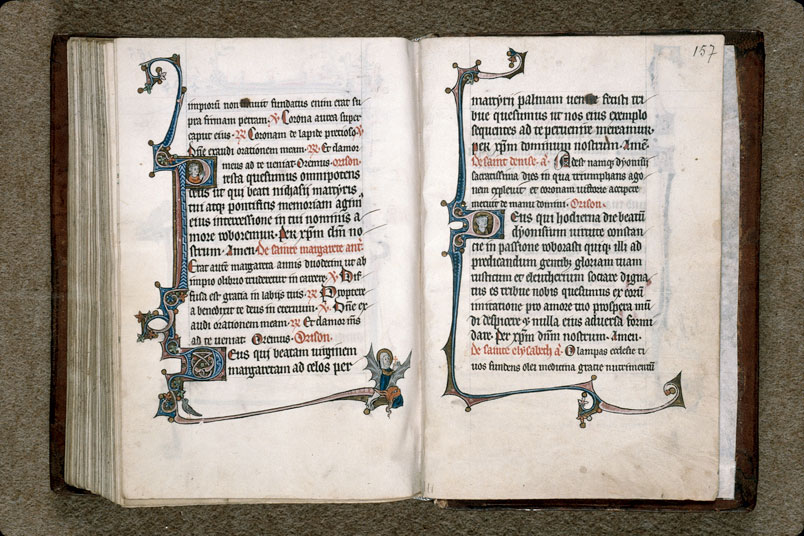 impiorū non timuit fundatus enim erat su
pra firmam petram. ℣ Corona aurea super
caput eius. ℟ Coronam de lapide precioso ℣
Dn̄e exaudi orationem meam. ℟ Et clamor
meus ad te veniat. Oremus. orison.
Presta quesumus omnipotens
deus ut qui beati nichasii martyris
tui atq; pontificis memoriam agim
eius intercessione in tui nominis a
more roboremur. Per xp̄m dn̄m no
strum. Amen. De sainte margarete ant̄
Erat autē margareta annis duodecim ut ab
impio olibrio traderetur in carcere. ℣ Dif
fusa est gratia in labijs tuis. ℟ Propterea
benedixit te deus in eternum. ℣ Dn̄e ex
audi orationem meam. ℟ Et clamor m̄s
ad te veniat. Oremus. Orison.
Deus qui beatam virginem
margaretam ad celos per
157
martyrij palmam venire fecisti tri
bue quesumus ut nos eius exemplo
sequentes ad te pervenire mereamur.
Per xp̄m dominum nostrum. Amē.
De saint denise. a. Adest namq; dyonisij
sacratissima dies in qua triumphans ago
nem explevit et coronam victorie accipere
meruit de manu domini. Orison.
Deus qui hodierna die beatū
dyonisium virtute constan
cie in passione roborasti quiq; illi ad
predicandum gentib; gloriam tuam
rusticum et eleutherium sociare digna
tus es tribue nobis quesumus ex eorū
imitatione pro amore tuo prospera mū
di despicere et nulla eius adversa formi
dare. Per xp̄m dn̄m nostrum. Amen.
De sainte elysabeth a. O lampas ecclesie ri
vos fundens olei medicina gratie nutrimentū